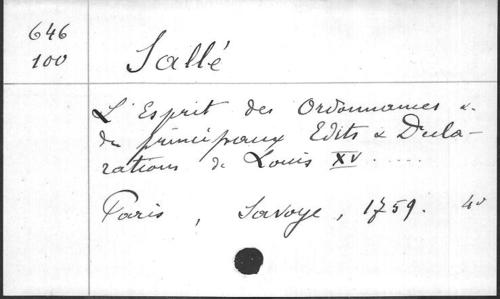 646
100
Sallé
L'Esprit des Ordonnances &
des principaux Edits & Decla-
rations de Louis XV .....
Paris, Savoye, 1759. 4º